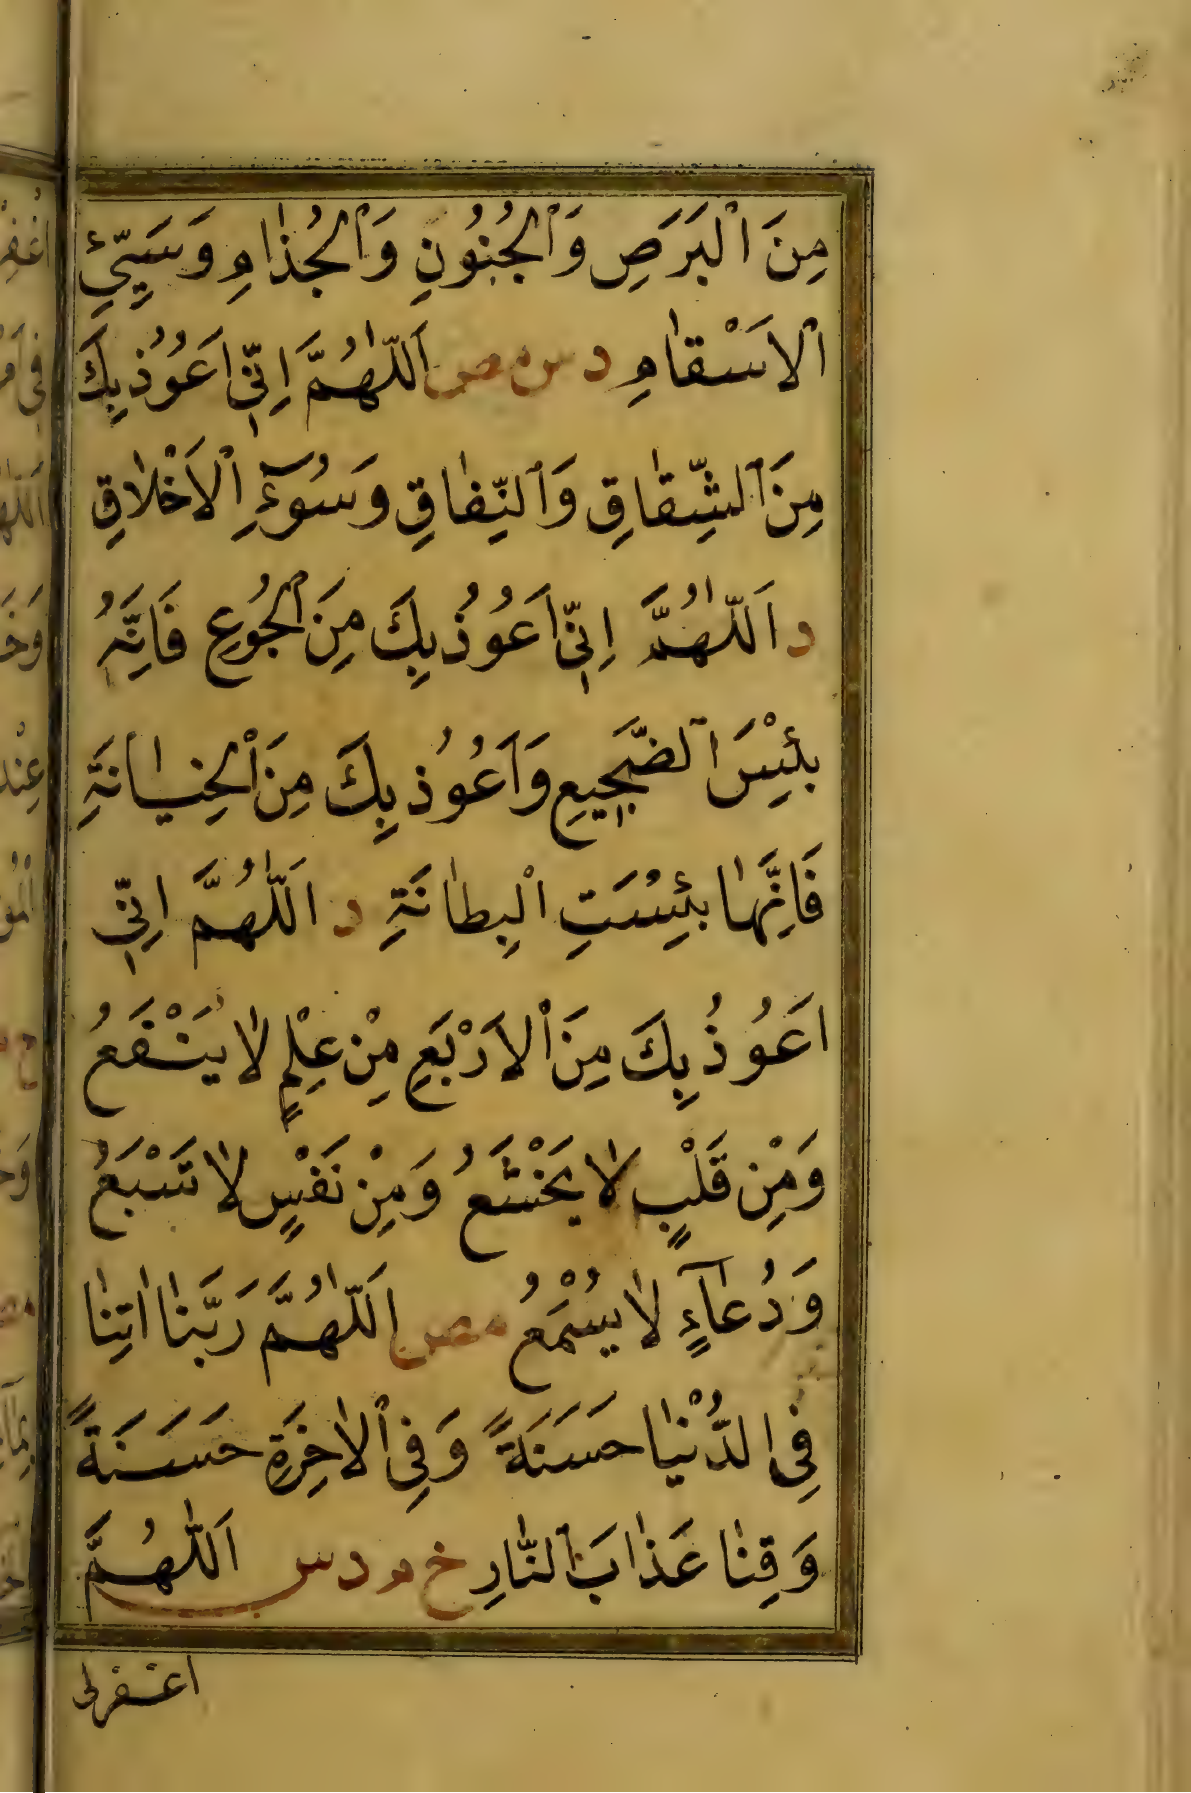 مِنَ ٱلْبَرَصِ وَٱلْجُنُونِ وَٱلْجُذَامِ وَسَيِّئِ
ٱلْاَسْقَامِ د س مص اَللّٰهُمَّ اِنِّي اَعُوُذُ بِكَ
مِنَ ٱلشِّقَاقِ وَٱلنِّفَاقِ وَسُوۤءِ ٱلْاَخْلَاقِ
د اَللّٰهُمَّ اِنِّي اَعُوُذُ بِكَ مِنَ ٱلْجُوعِ فَاِنَّهُ
بِئْسَ ٱلضَّجِيعِ وَاَعُوُذُ بِكَ مِنَ ٱلْخِيَانَةِ
فَاِنَّهَا بِئْسَتِ ٱلْبِطَانَةِ د اَللّٰهُمَّ اِنِّي
اَعُوُذُ بِكَ مِنَ ٱلْاَرْبَعِ مِنْ عِلْمٍ لَا يَنْفَعُ
وَمِنْ قَلْبٍ لَا يَخْشَعُ وَمِنْ نَفْسٍ لَا تَسْبَعُ
وَدُعَآءٍ لَا يُسْمَعُ مص اَللّٰهُمَّ رَبَّنَا اٰتِنَا
فِي ٱلدُّنْيَا حَسَنَةً وَفِي ٱلْاٰخِرَةِ حَسَنَةً
وَقِنَا عَذَابَ ٱلنَّارِ خ م د س اَللّٰهُمَّ
اغفرلى